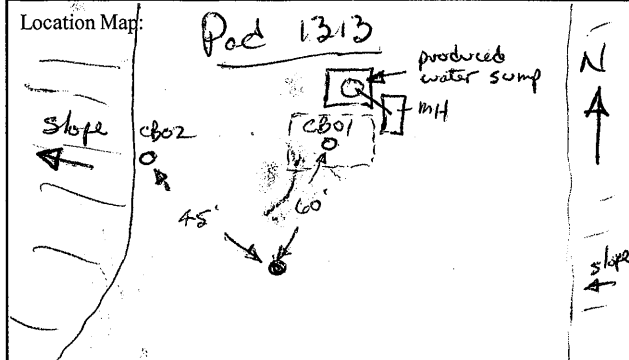 Location Map:
Pad 1313
produced
water sump
N
MH
Slope
CB02
CB01
45'
60'
slope